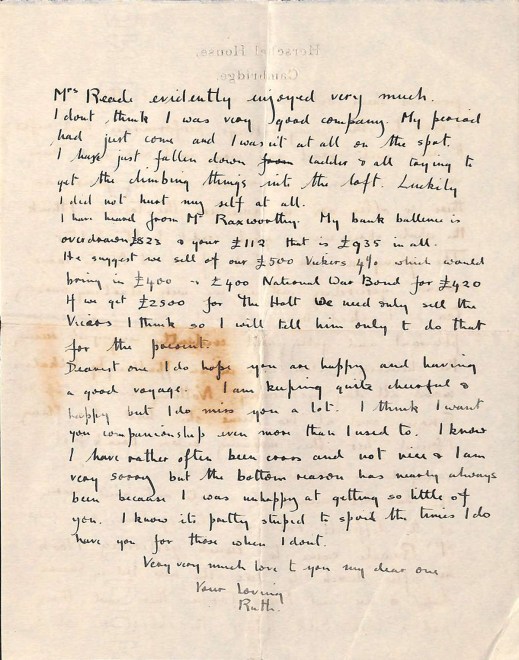 Herschel House,
Cambridge.
Mrs Reade evidently enjoyed very much.
I dont think I was very good company. My period
had just come and I wasn't at all on the spot.
I have just fallen down from ladder & all trying to
get the climbing things into the loft. Luckily
I did not hurt my self at all.
I have heard from Mr Raxworthy. My bank ballence is
overdrawn £823 & your £112 that is £935 in all.
He suggest we sell of our £500 Vickers 4% which would
bring in £400 & £400 National War Bond for £420
If we get £2500 for the Holt we need only sell the
Vicars I think so I will tell him only to do that
for the present.
Dearest one I do hope you are happy and having
a good voyage. I am keeping quite cheerful &
happy but I do miss you a lot. I think I want
you companionship even more than I used to. I know
I have rather often been cross and not nice & I am
very sorry but the bottom reason has nearly always
been because I was unhappy at getting so little of
you. I know its pretty stupid to spoil the times I do
have you for those when I dont.
Very very much love to you my dear one
Your loving
Ruth.